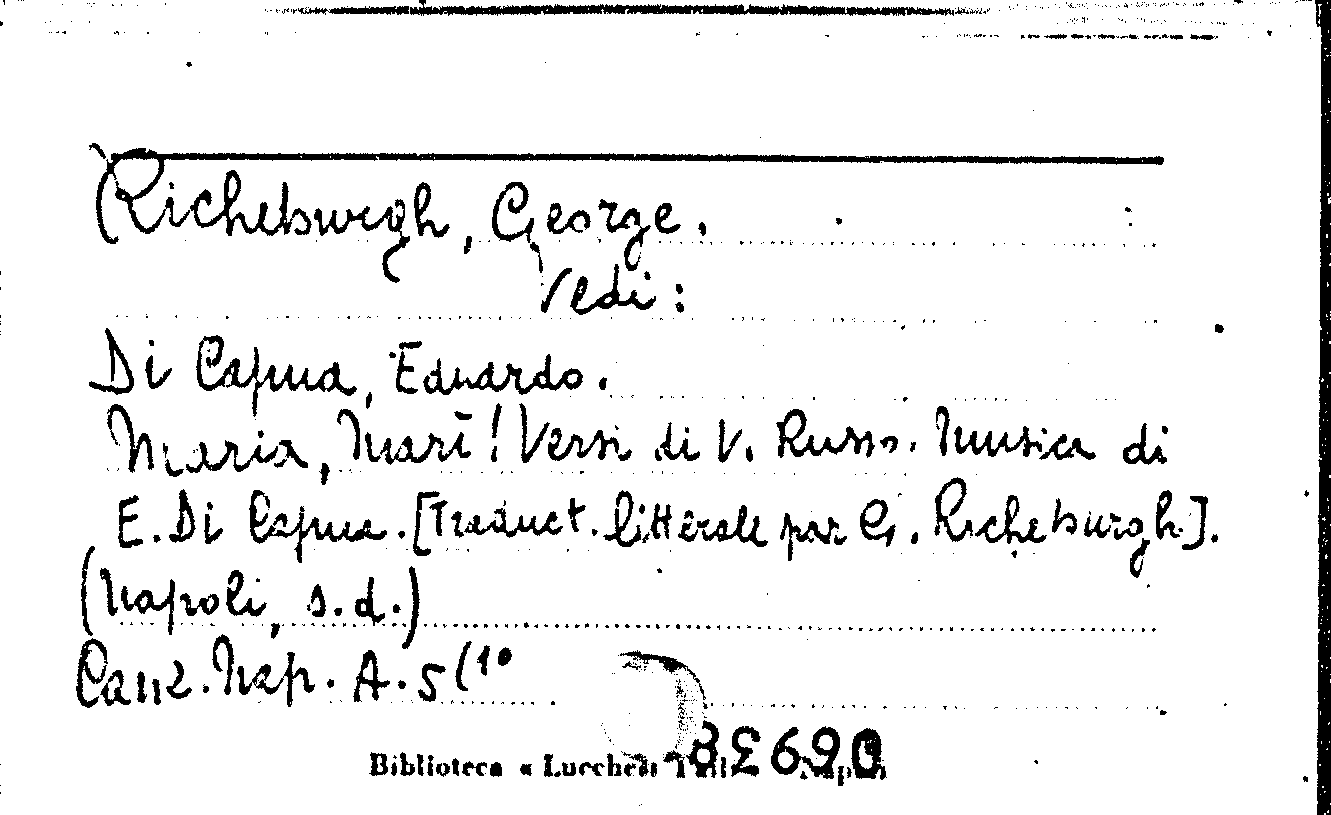 Richeburgh, George.
Vedi:
Di Capua, Eduardo.
Maria, Marì! Versi di V. Russo. Musica di
E. Di Capua. [Traduct. littérale par G. Richeburgh].
(Napoli, s.d.)
Canz. Nap. A. 5 (1°
Biblioteca « Lucchesi